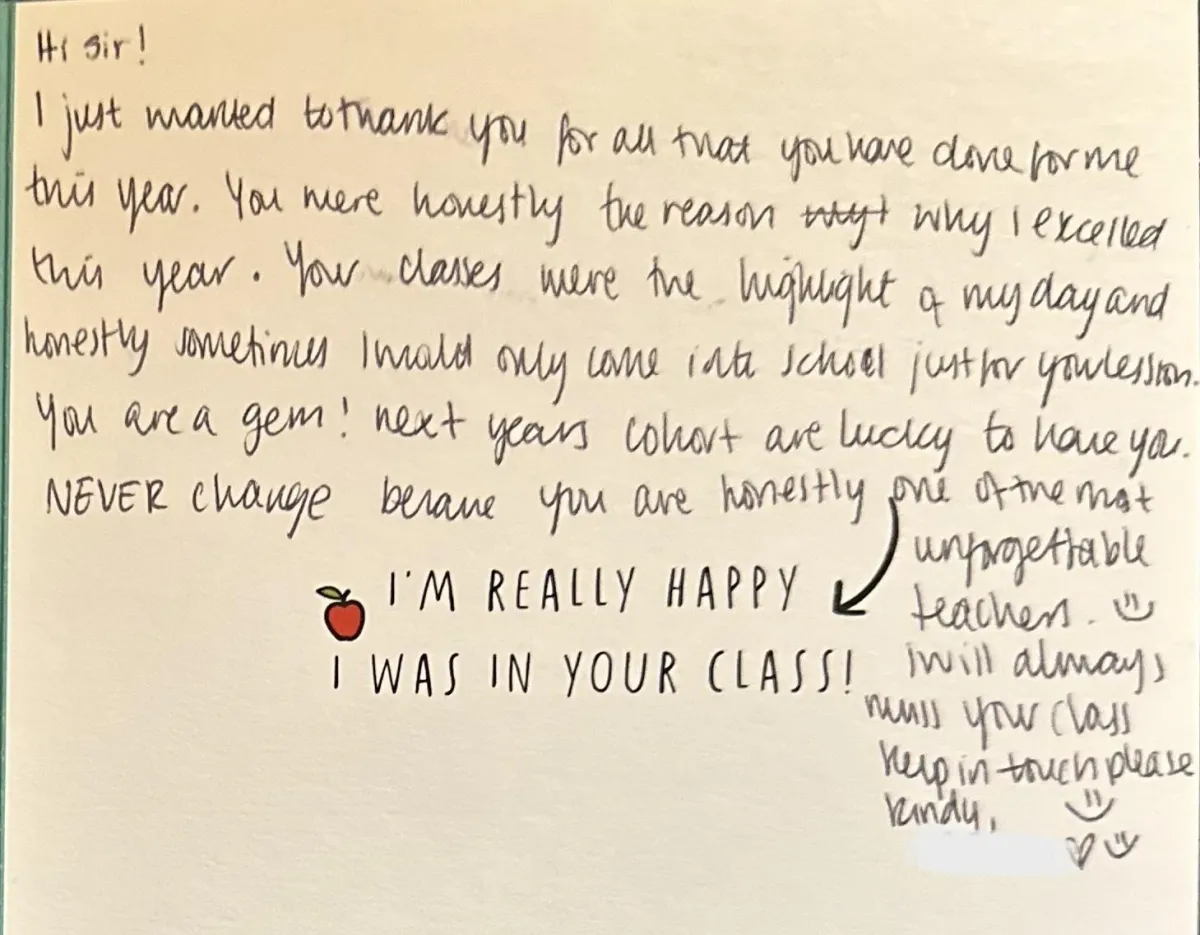 Hi Sir!
I just wanted to thank you for all that you have done for me
this year. You were honestly the reason why I excelled
this year. Your classes were the highlight of my day and
honestly sometimes I would only come into school just for your lesson.
You are a gem! next years cohort are lucky to have you.
NEVER change because you are honestly one of the most
unforgettable
teachers.
I'M REALLY HAPPY
I WAS IN YOUR CLASS!
i will always
miss your class
keep in touch please
kindly,